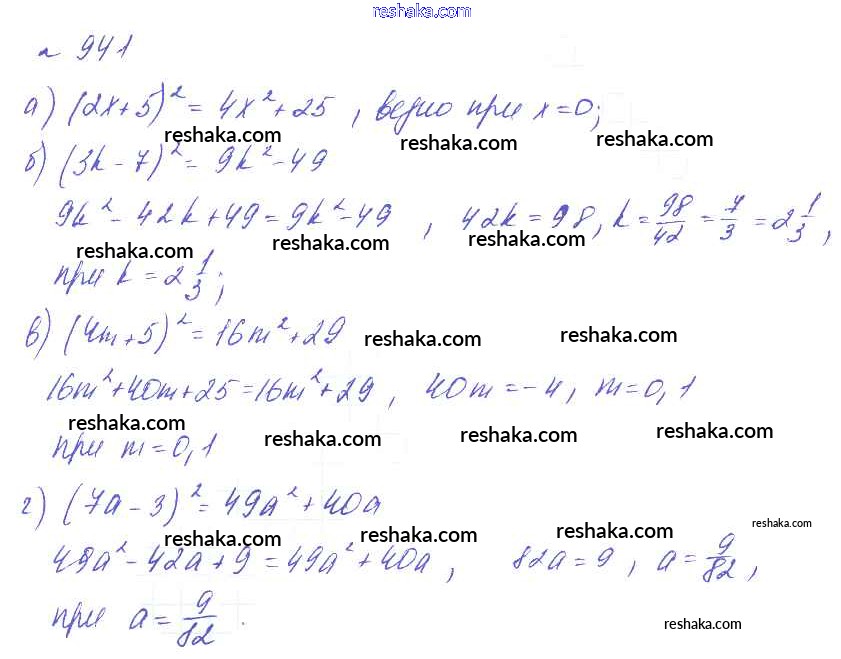 reshaka.com
№ 941
а) (2x+5)² = 4x²+25, верно при x=0;
reshaka.com reshaka.com reshaka.com
б) (3k-7)² = 9k²-49
9k²-42k+49=9k²-49, 42k=98, k=98/42=7/3=2 1/3,
reshaka.com reshaka.com reshaka.com
при k=2 1/3;
в) (4m+5)²=16m²+29
reshaka.com reshaka.com
16m²+40m+25=16m²+29, 40m=-4, m=0,1
reshaka.com reshaka.com reshaka.com reshaka.com
при m=0,1
г) (7a-3)²=49a²+40a
reshaka.com reshaka.com reshaka.com reshaka.com
49a²-42a+9=49a²+40a, 82a=9, a=9/82,
при a=9/82.
reshaka.com